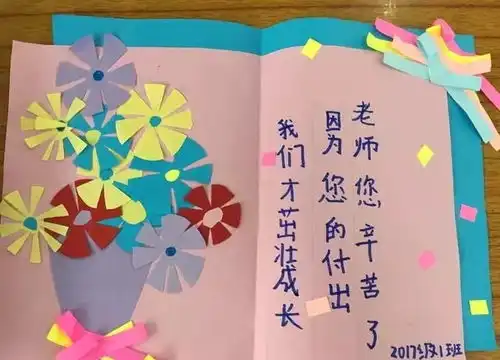 老师您辛苦了
因为您的付出
我们才茁壮成长
2017级1班